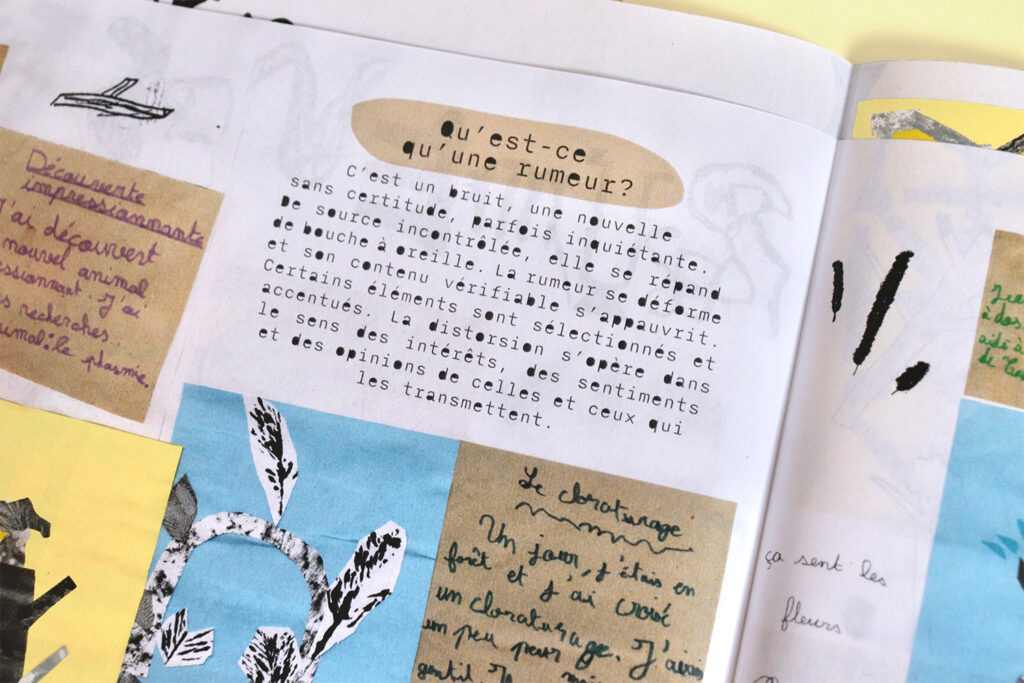 Qu'est-ce
qu'une rumeur?
C'est un bruit, une nouvelle
sans certitude, parfois inquiétante.
De source incontrôlée, elle se répand
de bouche à oreille. La rumeur se déforme
et son contenu vérifiable s'appauvrit.
Certains éléments sont sélectionnés et
accentués. La distorsion s'opère dans
le sens des intérêts, des sentiments
et des opinions de celles et ceux qui
les transmettent.
Découverte
impressionnante
J'ai découvert
nouvel animal
J'ai
recherches
la phasmie.
Le cloraturage
Un jour, j'étais en
forêt et j'ai croisé
un cloraturage. J'avais
un peu peur
gentil
à dos
de
ça sent les
fleurs